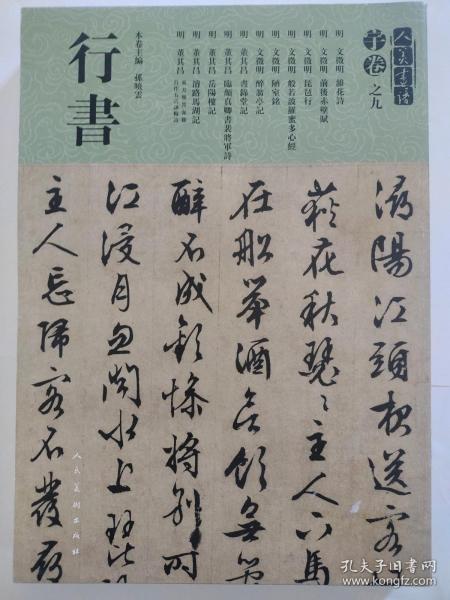 人美書譜
宇卷 之九
明 文徵明 雜花詩
明 文徵明 前後赤壁賦
明 文徵明 琵琶行
明 文徵明 般若波羅蜜多心經
明 文徵明 陋室銘
明 文徵明 醉翁亭記
明 董其昌 晝錦堂記
明 董其昌 臨顏真卿書裴將軍詩
明 董其昌 岳陽樓記
明 董其昌 濬路馬湖記
明 董其昌
本卷主編 孫曉雲
行書
潯陽江頭夜送客
荻花秋瑟〻主人下馬
在船舉酒欲飲無
醉不成歡慘將別時
江浸月忽聞水上琵
主人忘歸客不發尋
人民美術出版社
孔夫子旧书网
book.kongfz.com